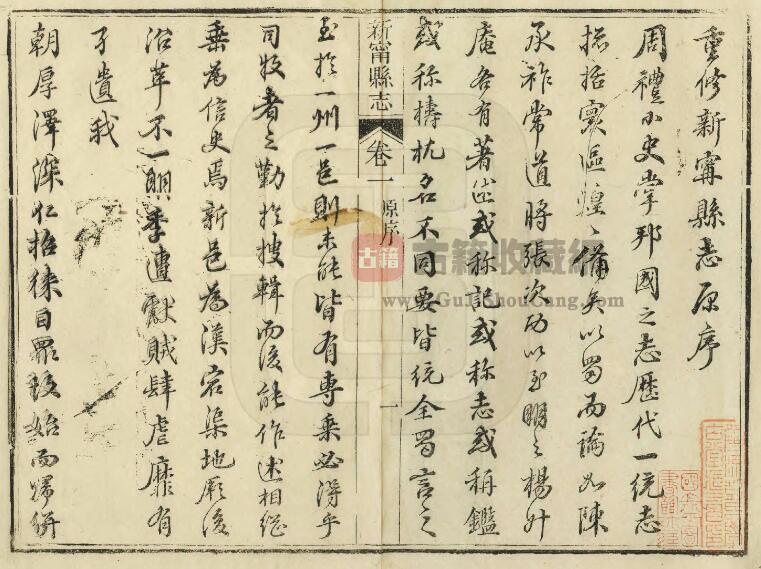 重修新甯縣志原序
周禮小史掌邦國之志歷代一統志
括寰區煌〻備矣以蜀而論如陳
承祚常道將張次功以至明之楊升
庵各有著述或称記或称志或稱鑑
或称檮杌名不同要皆統全蜀言之
新甯縣志
卷一
原序
一
至於一州一邑則未能皆有專乘必得乎
司牧者之勤於搜輯而後能作述相継
垂為信史焉新邑為漢宕渠地厥後
沿革不一明季遭獻賊肆虐靡有
孑遺我
朝厚澤深仁招徠目眾致始而歸併
古籍
古籍收藏
www.GuJiShouCang.com